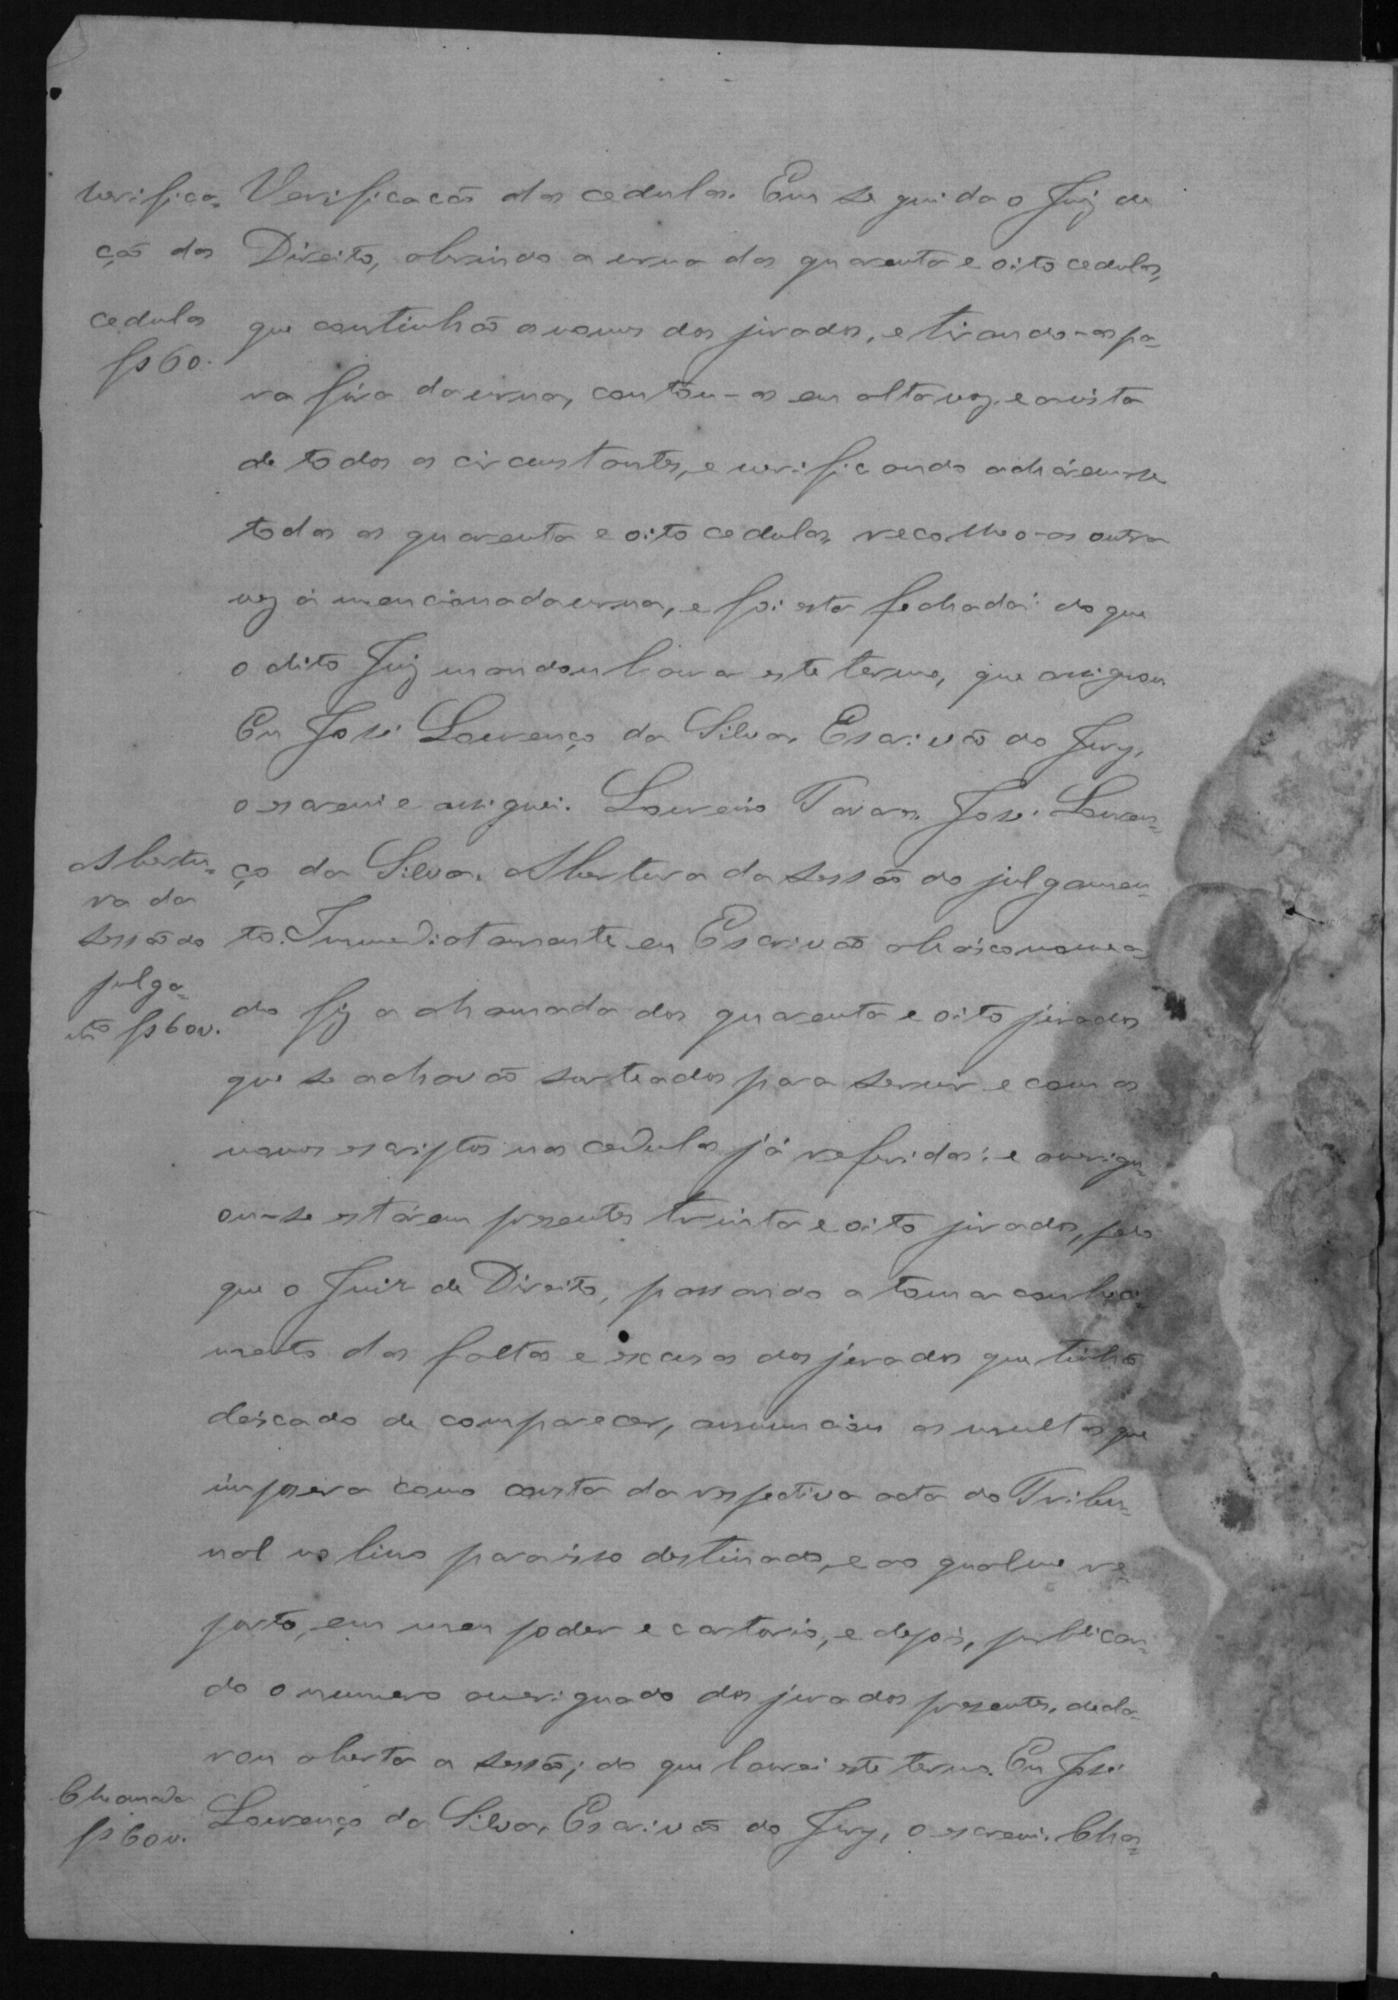 Verifica-
ção das
cedulas
fs 60.
Verificacão das cedulas. Em seguida o Juiz de
Direito, abrindo a urna das quarenta e oito cedulas,
que continhão os nomes dos jurados, e tirando-as pa-
ra fóra da urna, contou-as em alta voz, e a vista
de todos os circunstantes, e verificando achárem-se
todas as quarenta e oito cedulas, recolheo-as outra
vez á mencionada urna, e foi esta fechada: do que
o dito Juiz mandou lavrar este termo, que assignou
Eu José Lourenço da Silva, Escrivão do Jury,
o escrevi e assignei. Loureiro Tavares. José Louren-
Abertu-
ra da
sessão do
julga-
mto fs 60v.
ço da Silva. Abertura da sessão do julgamen-
to. Immediatamente eu Escrivão abáiconomea-
do fiz a chamada dos quarenta e oito jurados
que se achavão sorteados para servir e com os
nomes escriptos nas cedulas já referidas: e averigu-
ou-se estárem presentes trinta e oito jurados, pelo
que o Juiz de Direito, passando a tomar conheci-
mento das faltas e escusas dos jurados que tinhão
deicado de comparecer, annunciou as multas que
impozera como consta da respectiva acta do Tribu-
nal no livro para isso destinado, e ao qual me re-
porto, em meu poder e cartorio, e depois, publican-
do o numero averiguado dos jurados presentes, decla-
rou aberta a sessão; do que lavrei este termo. Eu José
Chamada
fs 60v.
Lourenço da Silva, Escrivão do Jury, o escrevi. Cha-